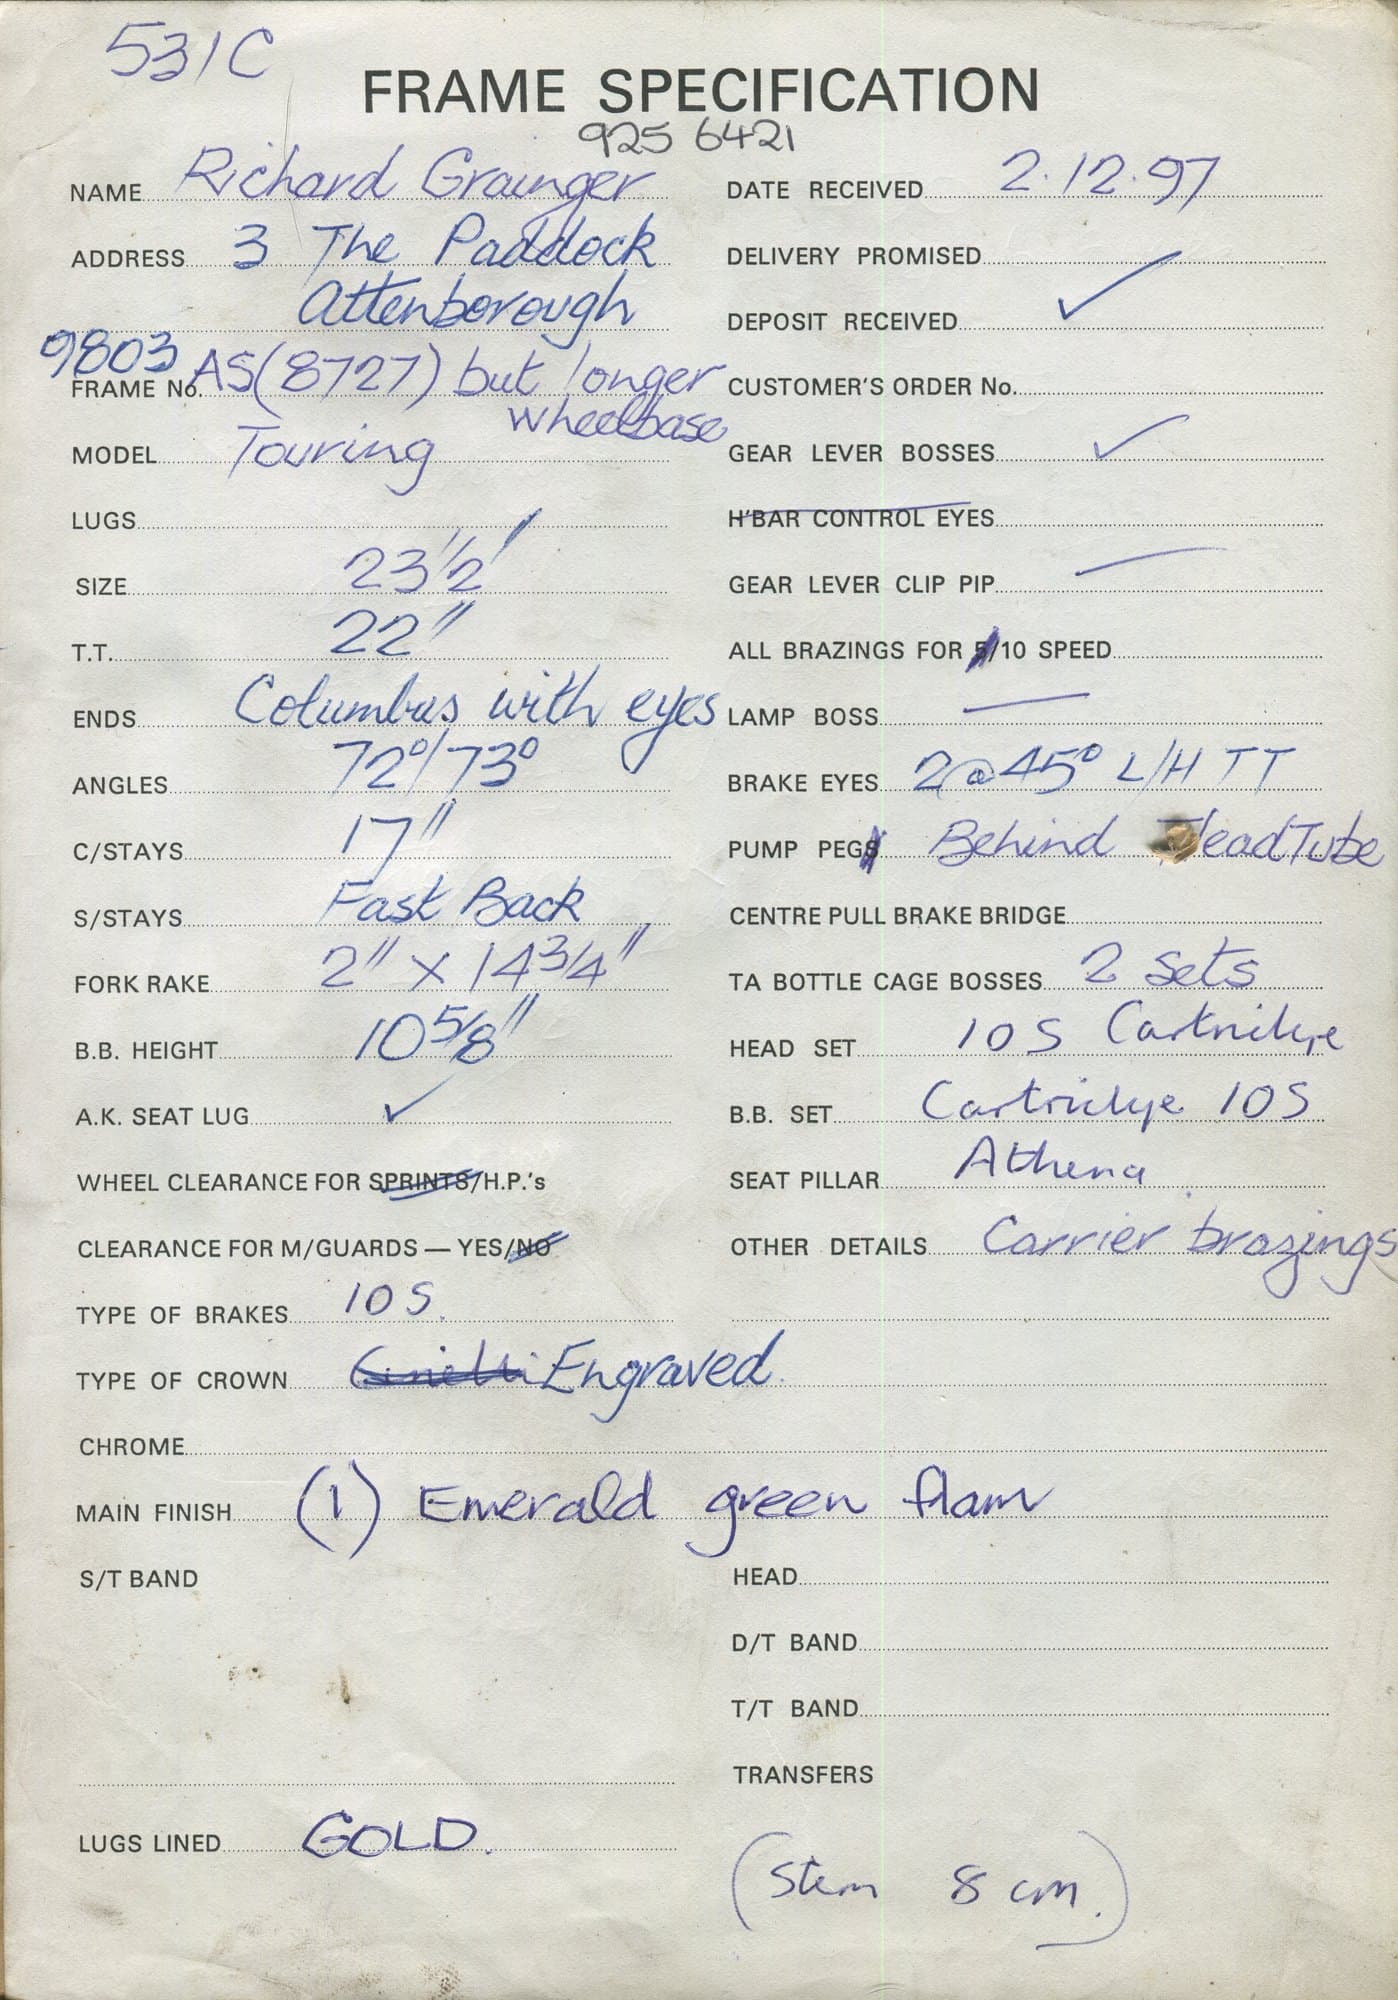 531C
FRAME SPECIFICATION
925 6421
NAME Richard Grainger
ADDRESS 3 The Paddock
Attenborough
9803
FRAME No. AS (8727) but longer
wheelbase
MODEL Touring
LUGS
SIZE 23 1/2"
T.T. 22"
ENDS Columbus with eyes
ANGLES 72°/73°
C/STAYS 17"
S/STAYS Fast Back
FORK RAKE 2" x 14 3/4"
B.B. HEIGHT 10 5/8"
A.K. SEAT LUG ✓
WHEEL CLEARANCE FOR SPRINTS/H.P.'s
CLEARANCE FOR M/GUARDS — YES/NO
TYPE OF BRAKES 105.
TYPE OF CROWN Cinelli Engraved
CHROME
MAIN FINISH (1) Emerald green flam
S/T BAND
LUGS LINED GOLD.
DATE RECEIVED 2.12.97
DELIVERY PROMISED
DEPOSIT RECEIVED ✓
CUSTOMER'S ORDER No.
GEAR LEVER BOSSES ✓
H'BAR CONTROL EYES
GEAR LEVER CLIP PIP —
ALL BRAZINGS FOR 5/10 SPEED
LAMP BOSS —
BRAKE EYES 2 @ 45° L/H TT
PUMP PEGS Behind HeadTube
CENTRE PULL BRAKE BRIDGE
TA BOTTLE CAGE BOSSES 2 sets
HEAD SET 105 Cartridge
B.B. SET Cartridge 105
SEAT PILLAR Athena
OTHER DETAILS Carrier brazings
HEAD
D/T BAND
T/T BAND
TRANSFERS
(Stem 8 cm.)